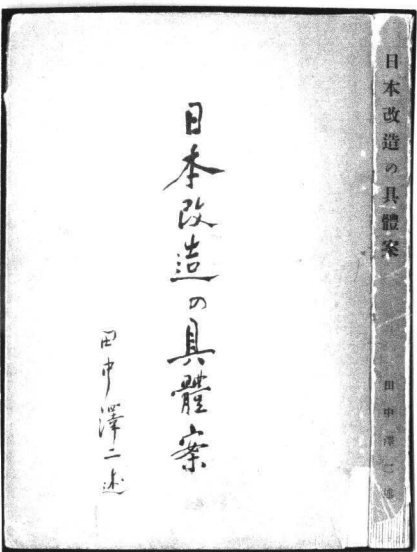 日本改造の具體案
田中澤二述
日本改造の具體案
田中澤二述